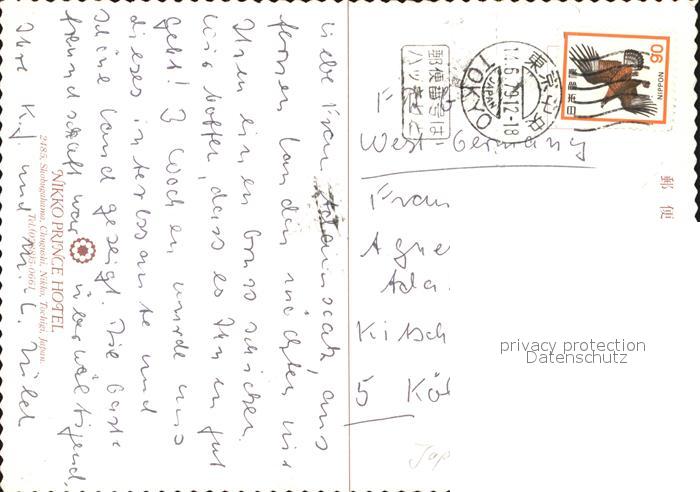 Liebe Frau Adamscak, aus
fernen Landen möchten wir
Ihnen einen Gruss schicken.
Wir hoffen, dass es Ihnen gut
geht! 3 Wochen wurde uns
dieses interessante und
schöne Land gezeigt. Die Gast-
freundschaft war überwältigend,
Ihre K. und
NIKKO PRINCE HOTEL
2485, Shobugahama, Chugushi, Nikko, Tochigi, Japan.
Tel. (0288)5-0661
郵便番号は
ハッキリと
東京中央
14.6.79 12-18
TOKYO
JAPAN
90
NIPPON
日本郵便
郵便
West-Germany
Frau
Agne
Ada
Kitsch
5 Köl
Jap
privacy protection
Datenschutz